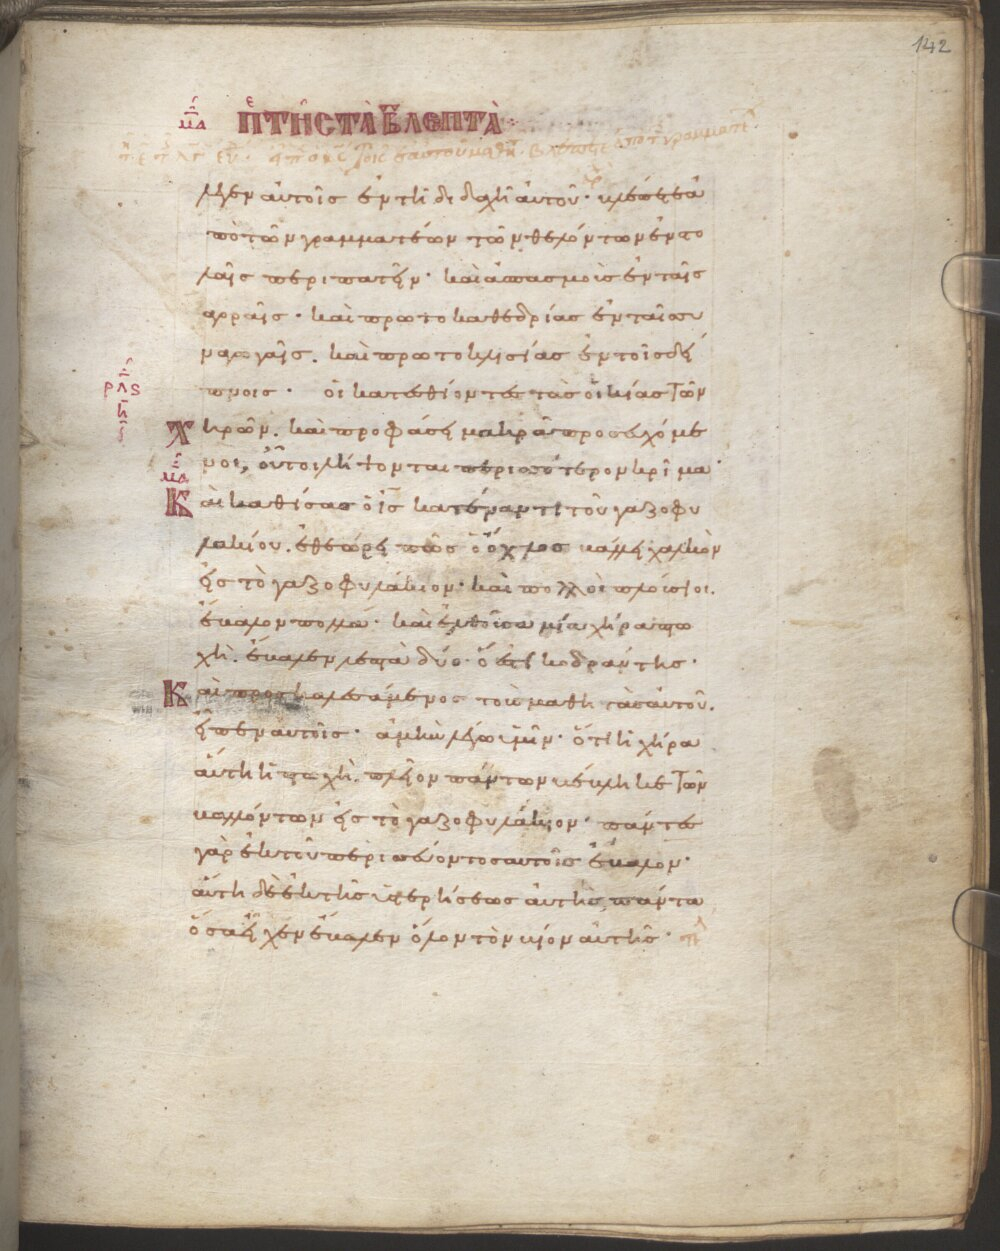 142
μα πε τῆς τὰ β λεπτὰ
λεγεν αὐτοῖς ἐν τῆ διδαχῆ αὐτοῦ· βλέπετε ἀ
πὸ τῶν γραμματέων τῶν θελόντων ἐν στο
λαῖς περιπατεῖν· καὶ ἀσπασμοὺς ἐν ταῖς
ἀγοραῖς· καὶ πρωτοκαθεδρίας ἐν ταῖς συ
ναγωγαῖς. καὶ πρωτοκλισίας ἐν τοῖς δεί
πνοις· οἱ κατεσθίοντες τὰς οἰκίας τῶν
ρλς
η
χηρῶν. καὶ προφάσει μακρὰ προσευχόμε
νοι, οὗτοι λήψονται περισσότερον κρίμα·
μα
Καὶ καθίσας ὁ ις κατέναντι τοῦ γαζοφυ
λακίου. ἐθεώρει πῶς ὁ ὄχλος βάλλει χαλκὸν
εἰς τὸ γαζοφυλάκιον· καὶ πολλοὶ πλούσιοι.
ἔβαλον πολλά· καὶ ἐλθοῦσα μία χήρα πτω
χὴ. ἔβαλεν λεπτὰ δύο· ὅ ἐστι κοδράντης·
Καὶ προσκαλεσάμενος τοὺς μαθητὰς αὐτοῦ.
εἶπεν αὐτοῖς· ἀμὴν λέγω ὑμῖν· ὅτι ἡ χήρα
αὕτη ἡ πτωχὴ. πλεῖον πάντων βέβληκε τῶν
βαλλόντων εἰς τὸ γαζοφυλάκιον· πάντες
γὰρ ἐκ τοῦ περισσεύοντος αὐτοῖς ἔβαλον·
αὕτη δὲ ἐκ τῆς ὑστερήσεως αὐτῆς πάντα
ὅσα εἶχεν ἔβαλεν ὅλον τὸν βίον αὐτῆς·